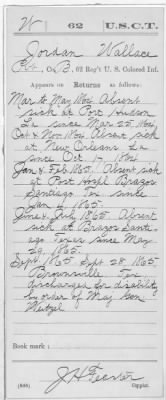 W 62 U.S.C.T.
Jordan Wallace
Pvt, Co. B, 62 Reg't U. S. Colored Inf.
Appears on
Returns as follows:
Mar to May 1864 Absent
sick at Port Hudson
La since Mar 25, 1864
Oct & Nov 1864 Absent sick
at New Orleans La
since Oct 1864
Jan & Feb 1865, Absent sick
at Post Hospl Brazos
Santiago Tex since
Jan 1865.
June & July 1865 Absent
sick at Brazos Santi-
ago Texas since May
29, 1865.
Sept. 1865 Sept 28 1865
Brownsville Tex
discharged for disability
by order of Maj Gen
Weitzel
Book mark:
J H Feester
(546) Copyist.